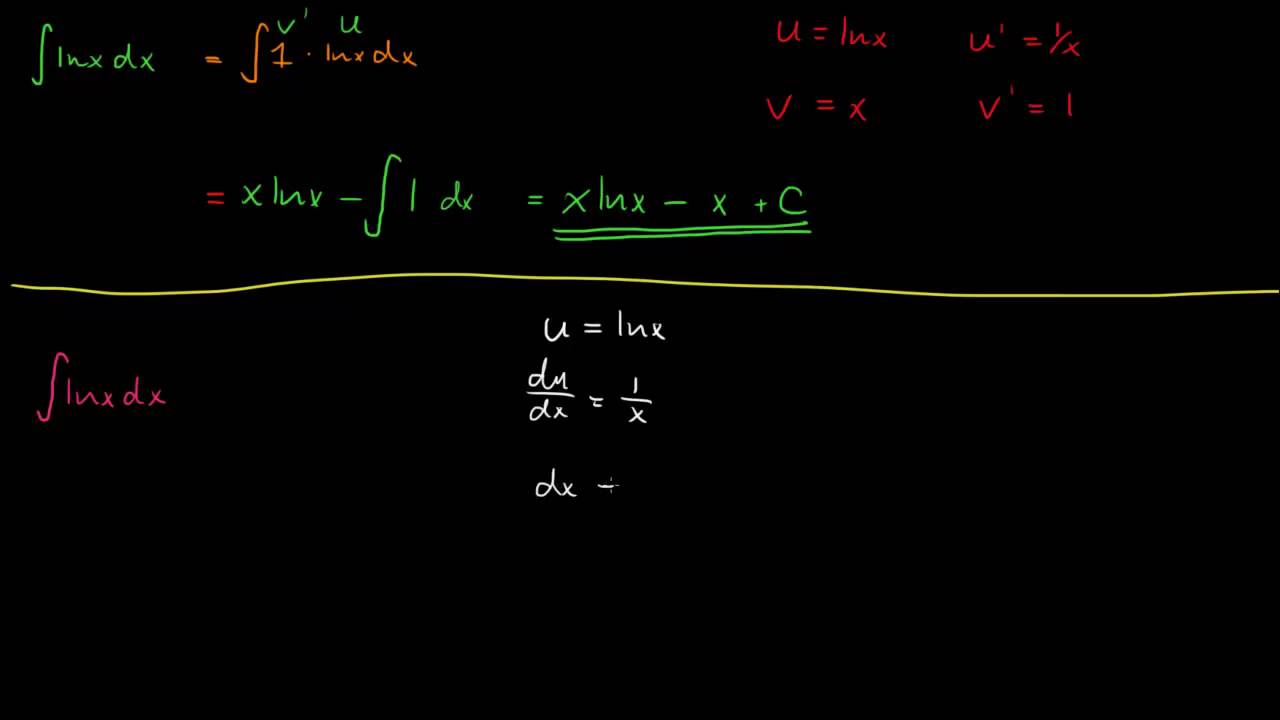 ∫ lnx dx = ∫ 1 · lnx dx
v' u
u = lnx u' = 1/x
v = x v' = 1
= x lnx − ∫ 1 dx = x lnx − x + C
u = lnx
∫ lnx dx
du/dx = 1/x
dx =